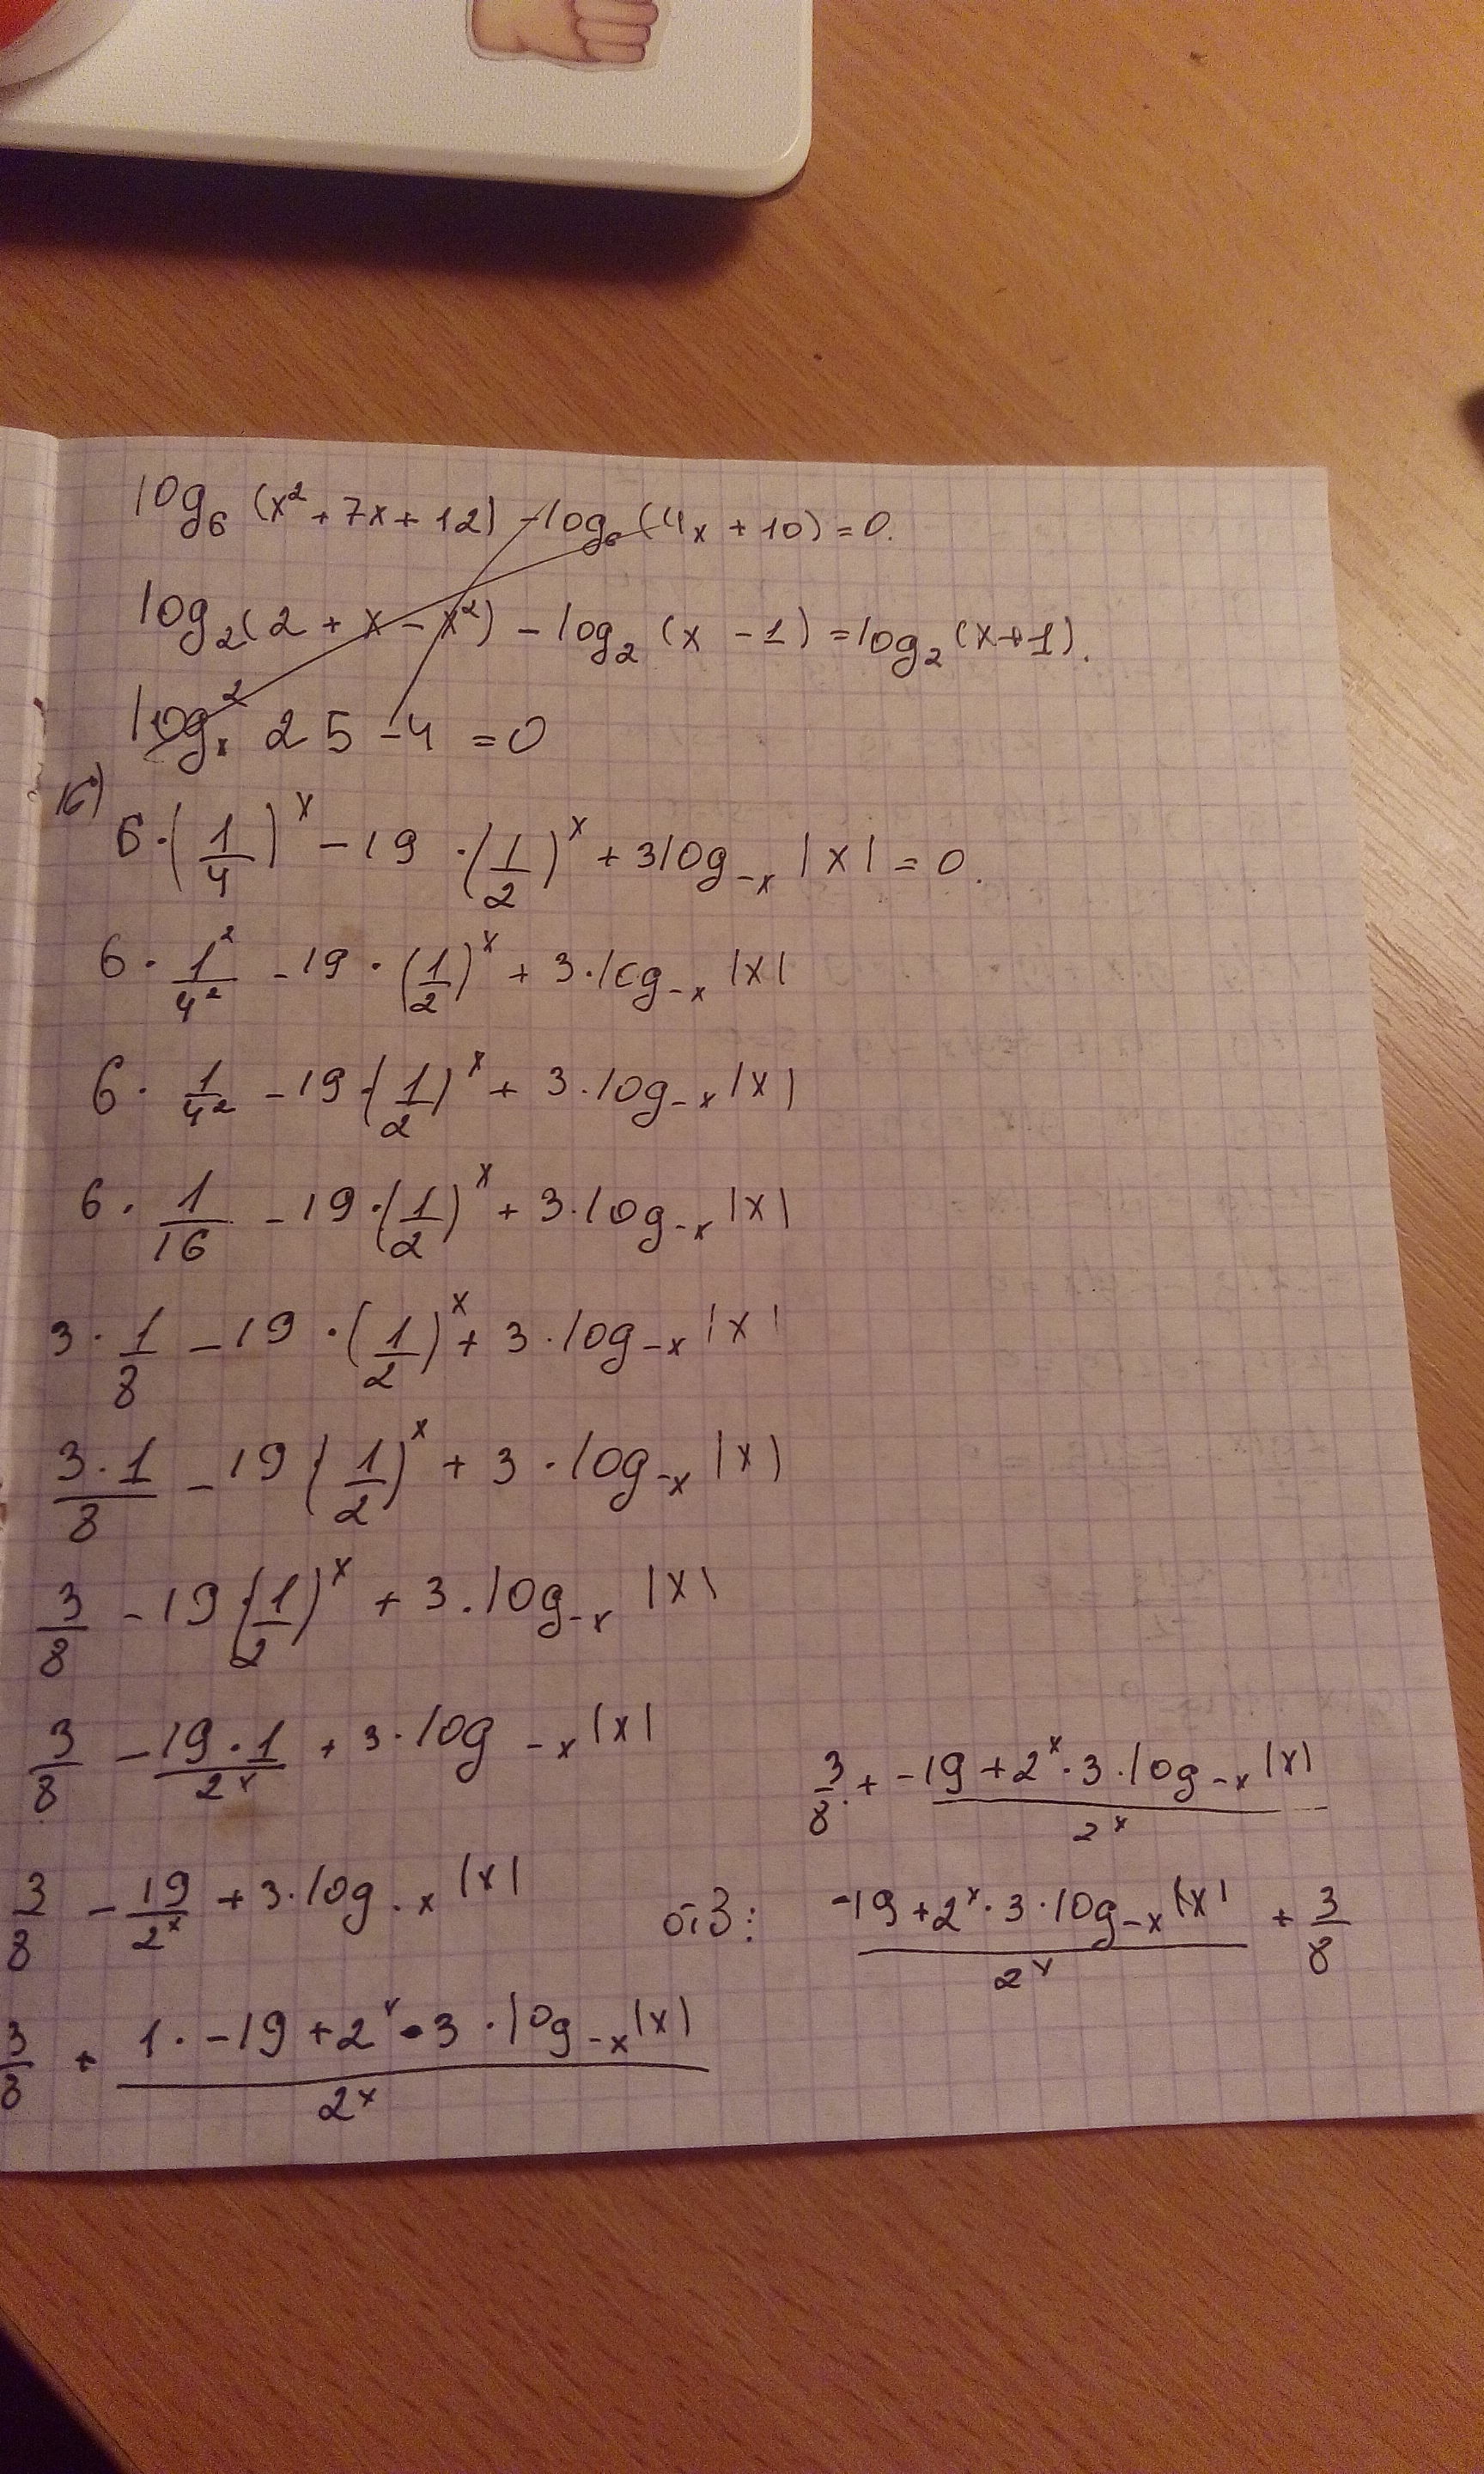 log₆ (x² + 7x + 12) - log₆ (4x + 10) = 0.
log₂(2 + x - x²) - log₂ (x - 1) = log₂ (x + 1).
log²ₓ 25 - 4 = 0
15)
6·(1/4)^x - 19 ·(1/2)^x + 3log₋ₓ |x| = 0.
6 · 1²/4² - 19 · (1/2)^x + 3·log₋ₓ |x|
6 · 1/4² - 19·(1/2)^x + 3·log₋ₓ |x|
6 · 1/16 - 19·(1/2)^x + 3·log₋ₓ |x|
3 · 1/8 - 19 ·(1/2)^x + 3·log₋ₓ |x|
3·1/8 - 19 (1/2)^x + 3·log₋ₓ |x|
3/8 - 19 (1/2)^x + 3·log₋ₓ |x|
3/8 - 19·1/2^x + 3·log₋ₓ |x|
3/8 - 19/2^x + 3·log₋ₓ |x|
3/8 + (1·-19 + 2^x·3·log₋ₓ |x|)/2^x
3/8 + (-19 + 2^x·3·log₋ₓ |x|)/2^x
(-19 + 2^x·3·log₋ₓ |x|)/2^x + 3/8